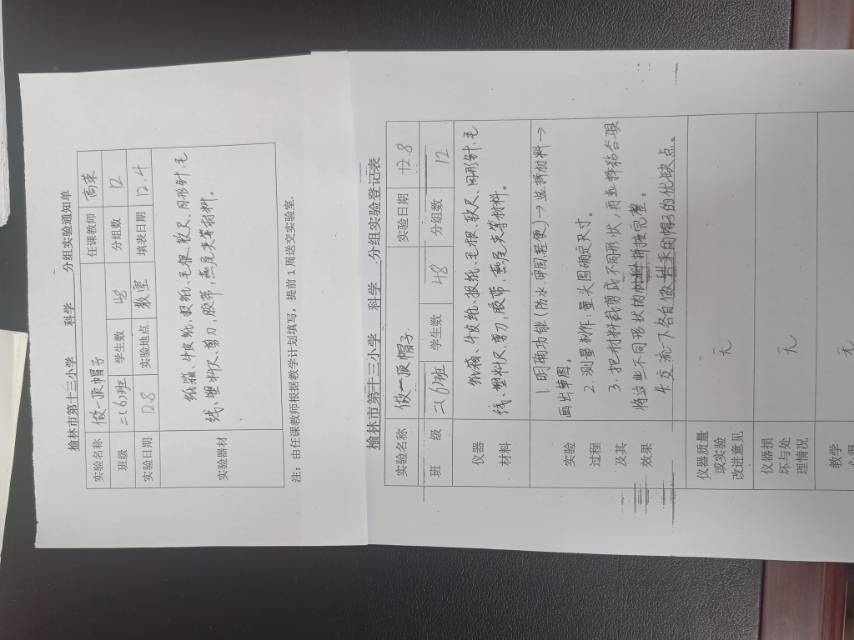 榆林市第十三小学 科学 分组实验通知单
实验名称 做一顶帽子 任课教师 高荣
班级 二(6)班 学生数 48 分组数 12
实验日期 12.8 实验地点 教室 填表日期 12.4
实验器材 纸箱、牛皮纸、报纸、毛根、软尺、回形针、毛
线、塑料尺、剪刀、胶带、燕尾夹等材料。
注：由任课教师根据教学计划填写，提前1周送交实验室.
榆林市第十三小学 科学 分组实验登记表
实验名称 做一顶帽子 实验日期 12.8
班 级 二(6)班 学生数 48 分组数 12
仪器
材料
纸箱、牛皮纸、报纸、毛根、软尺、回形针、毛
线、塑料尺、剪刀、胶带、燕尾夹等材料。
实验
过程
及其
效果
1.明确功能(防水、牢固、轻便)→选择材料→
画出草图。
2.测量制作:量头围确定尺寸。
3.把材料裁剪成不同形状,再
将这些不同形状的材料拼接完整。
4.交流下各自做出来的帽子的优缺点。
仪器质量
或实验
改进意见
无
仪器损
坏与处
理情况
无
教学
无